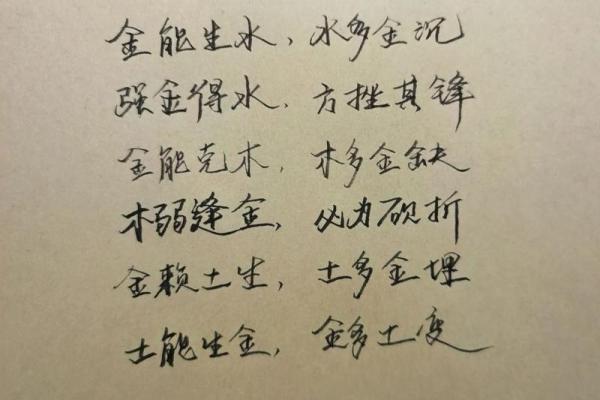 金能生水，水多金沉
强金得水，方挫其锋
金能克木，木多金缺
木弱逢金，必为砍折
金赖土生，土多金埋
土能生金，金多土变